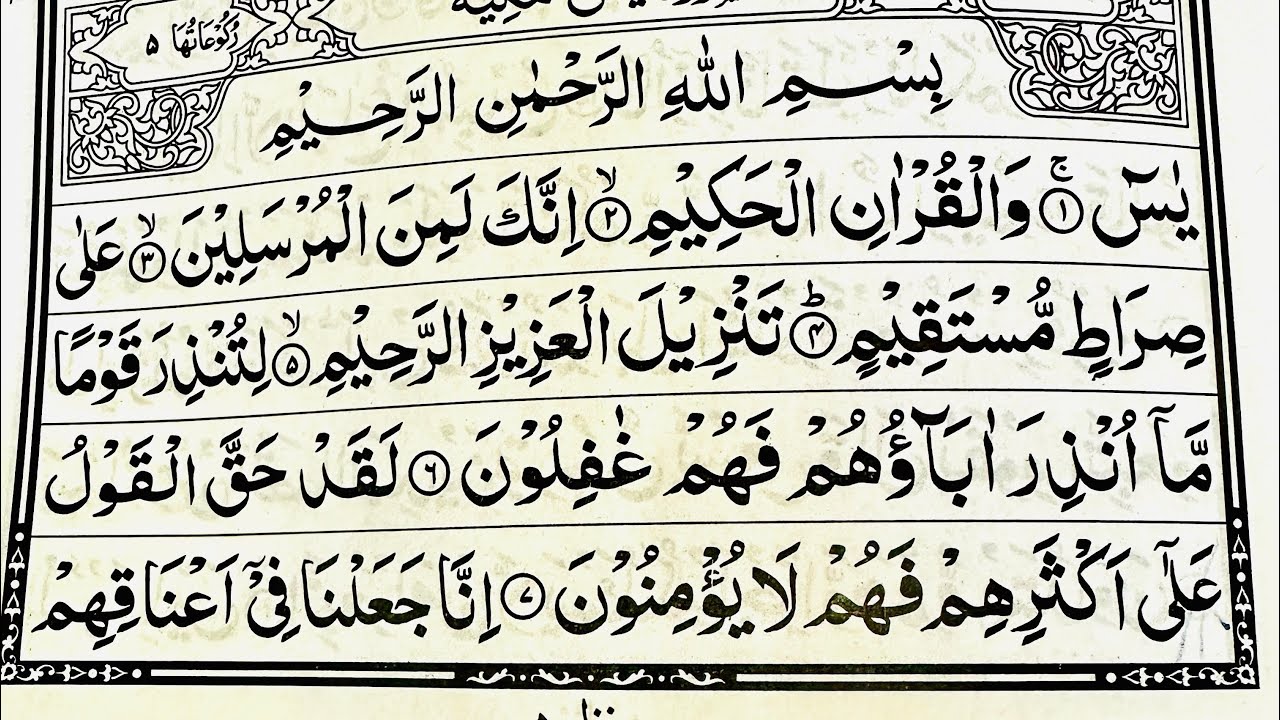 رُكُوْعَاتُهَا ۵
بِسْمِ اللّٰهِ الرَّحْمٰنِ الرَّحِيْمِ
يٰسٓ ۚ﴿۱﴾ وَالْقُرْاٰنِ الْحَكِيْمِ ۙ﴿۲﴾ اِنَّكَ لَمِنَ الْمُرْسَلِيْنَ ۙ﴿۳﴾ عَلٰى
صِرَاطٍ مُّسْتَقِيْمٍ ؕ﴿۴﴾ تَنْزِيْلَ الْعَزِيْزِ الرَّحِيْمِ ۙ﴿۵﴾ لِتُنْذِرَ قَوْمًا
مَّاۤ اُنْذِرَ اٰبَآؤُهُمْ فَهُمْ غٰفِلُوْنَ ﴿۶﴾ لَقَدْ حَقَّ الْقَوْلُ
عَلٰۤى اَكْثَرِهِمْ فَهُمْ لَا يُؤْمِنُوْنَ ﴿۷﴾ اِنَّا جَعَلْنَا فِيْۤ اَعْنَاقِهِمْ